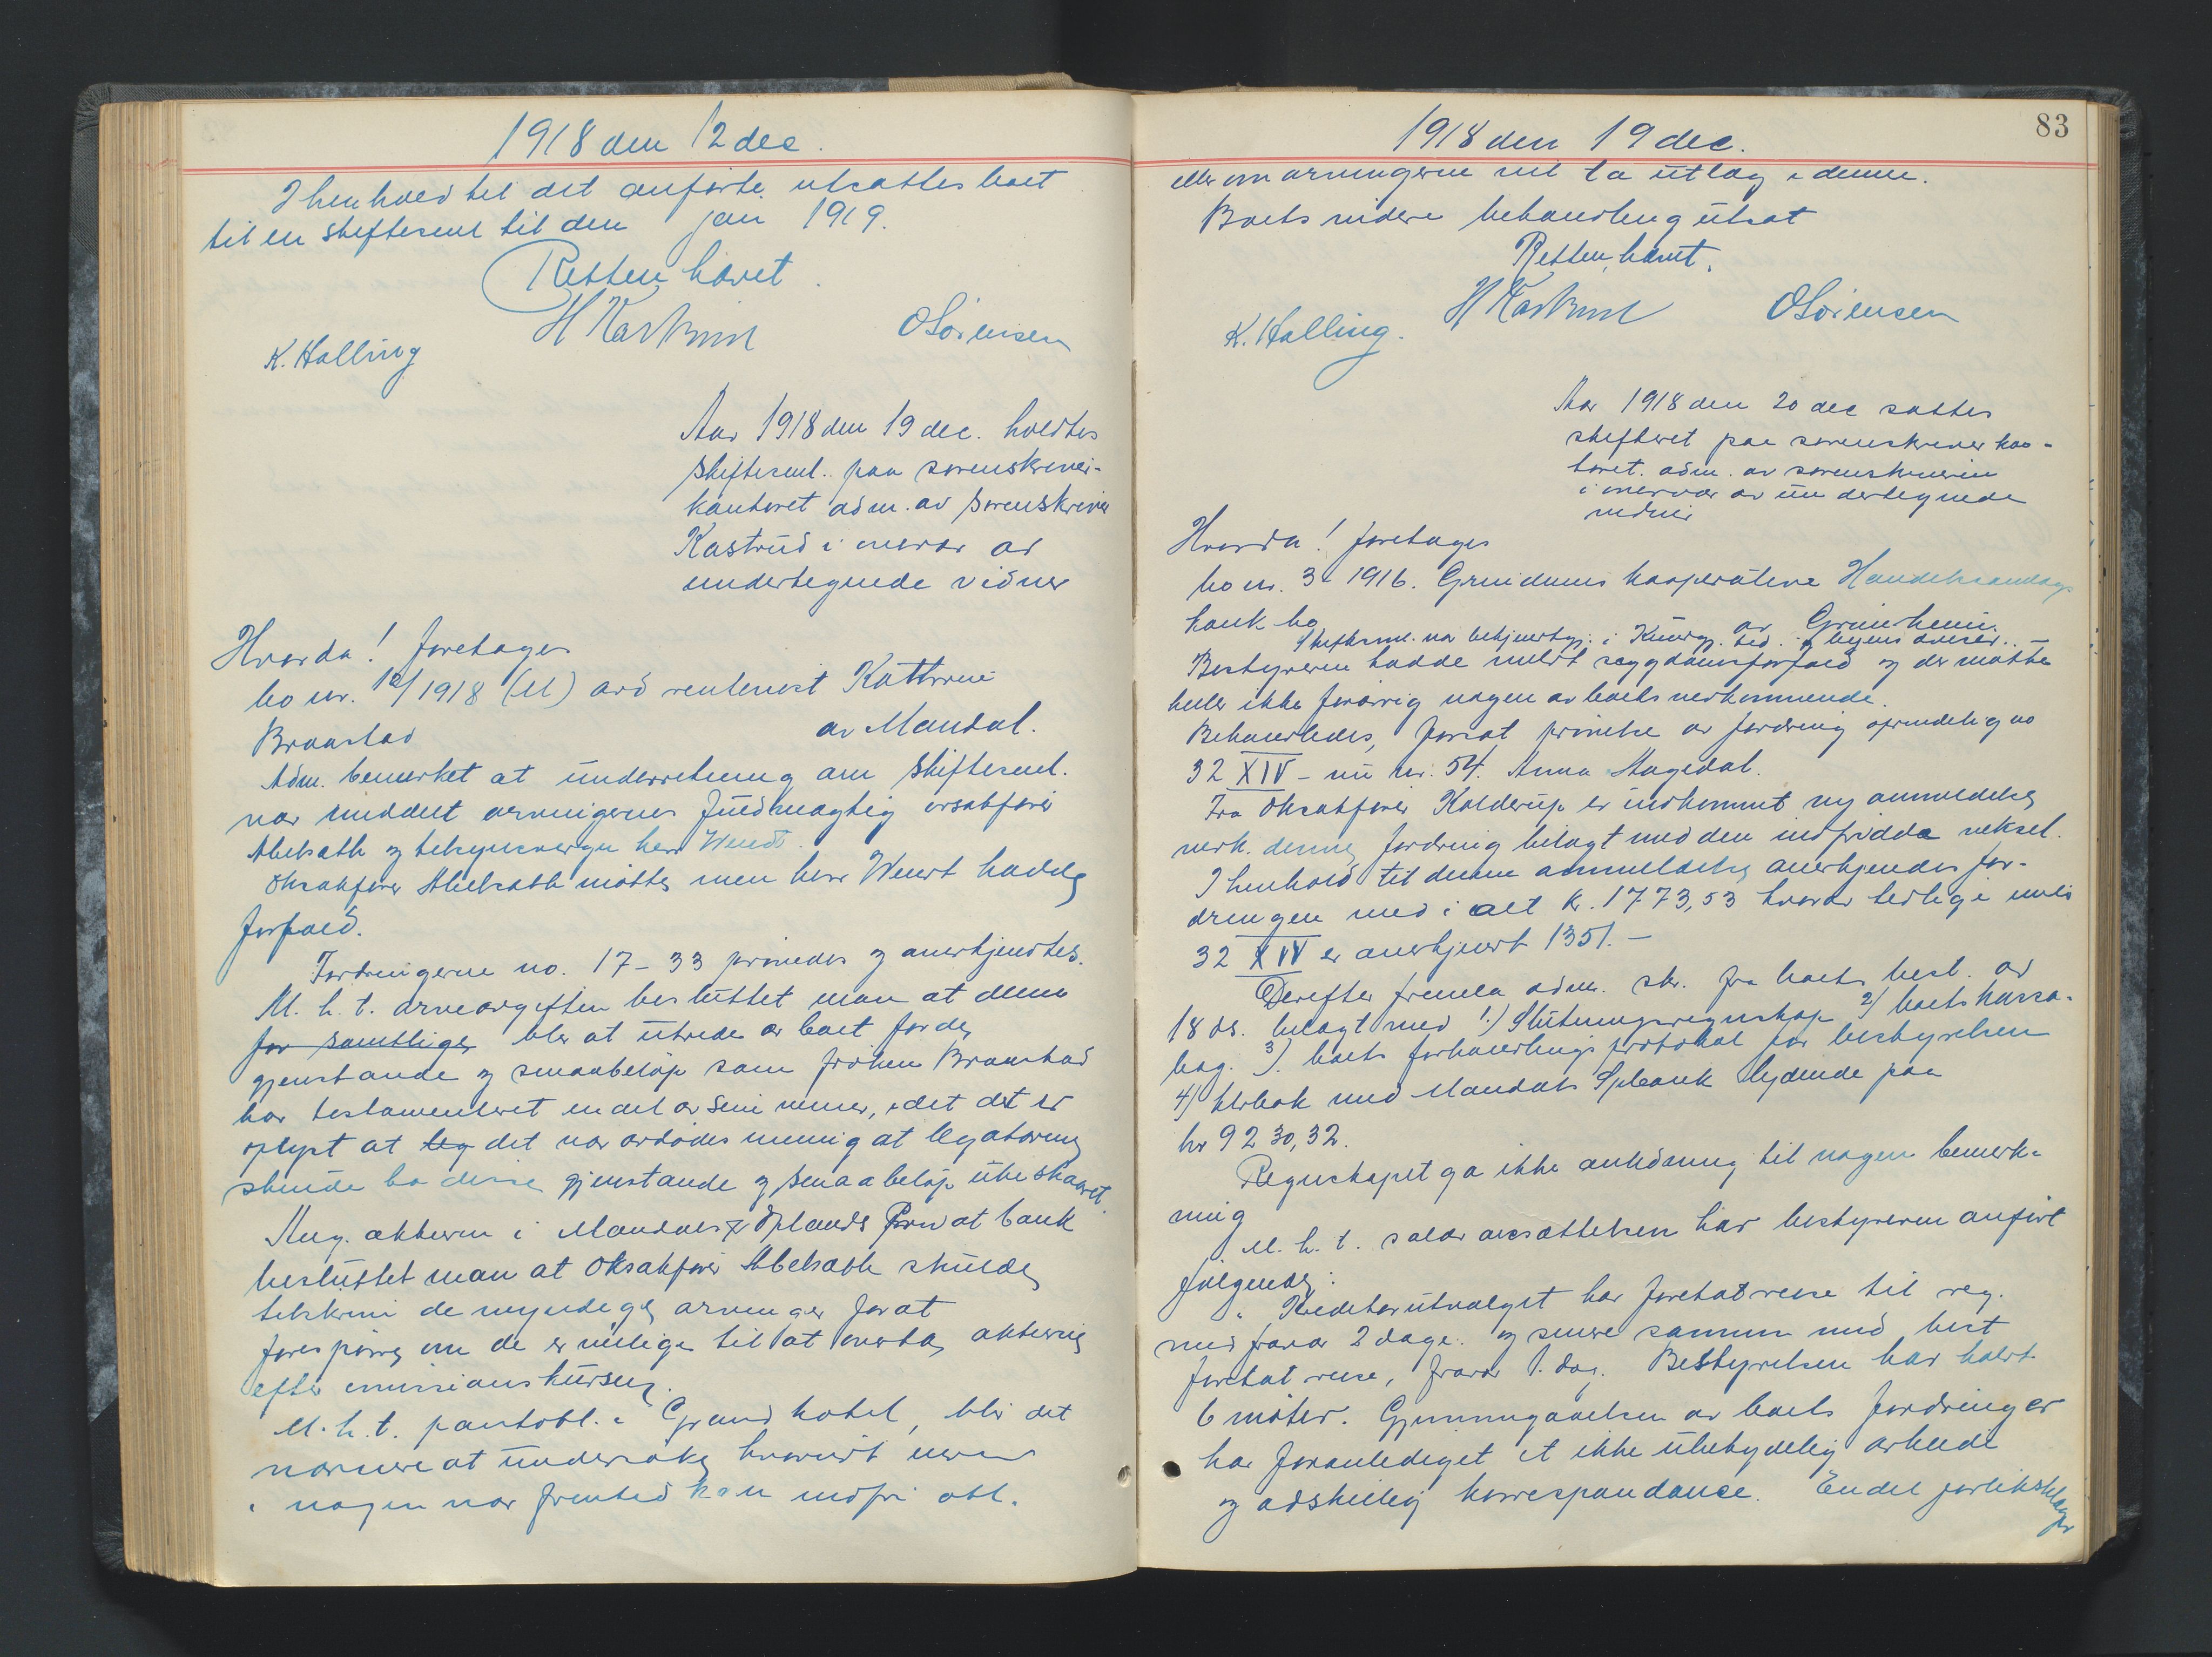 1918 den 12 dec.
I henhold til det anførte utsattes boet
til en skiftesaml til den jan 1919.
Retten hævet.
H Kastrud
OSørensen
K. Halling
Aar 1918 den 19 dec. holdtes
skiftesaml. paa sorenskriver-
kontoret adm. av sorenskriver
Kastrud i overvær av
undertegnede vidner
Hvorda! foretages
bo nr. 1918 (M) avd rentenist Kathrine
Braastad av Mandal.
Adm. bemerket at underretning om skiftesaml.
var meddelt arvingernes fuldmægtig orsakfører
Abelseth og tilsynsverge herr Wendt.
Orsakfører Abelseth møtte, men herr Wendt hadde
forfald.
Fordringerne no. 17-33 prøvedes og anerkjendtes.
M. h. t. arveavgiften besluttet man at denne
for samtlige blir at utrede av boet for de
gjenstande og smaabeløp som frøken Braastad
har testamenteret en del av sine venner, idet det er
oplyst at leg det var avdødes mening at legatarerne
skulde ha disse gjenstande og smaabeløp ubeskaaret.
Ang. aktierne i Mandals og Oplands Privatbank
besluttet man at Orsakfører Abelseth skulde
tilskrive de myndige arvinger for at
forespørre om de er villige til at overta aktierne
efter emissionskursen.
M. h. t. pantobl. i Grand hotel, blir det
nærmere at undersøke hvorvidt
i nogen nær fremtid kan indfri obl.
83
1918 den 19 dec.
eller om arvingerne vil ta utlæg i denne.
Boets videre behandling utsat
Retten hævet.
H Kastrud
OSørensen
K. Halling.
Aar 1918 den 20 dec sattes
skifteret paa sorenskriverkon-
toret. adm. av sorenskriveren
i overvær av undertegnede
vidner
Hvorda! foretages
bo nr. 3 1916. Grindheims kooperative Handelsandags
konk bo av Grindheim.
Skiftesml. var bekjendtgj. i Kundgj. tid. og byens aviser.
Bestyreren hadde meldt sygdomsforfald og der møtte
heller ikke forøvrig nogen av boets vedkommende.
Behandledes, forsat prøvelse av fordring oprindelig no
32 XIV - nu nr. 54. Anna Hagedal.
Fra Orsakfører Kalderup er indkommet ny anmeldelse
vedk. denne fordring belagt med den indfridde veksel.
I henhold til denne anmeldelse anerkjendes for-
dringen med i alt kr. 1773,53 hvorav tidligere under
32 XIV er anerkjendt 1351.-
Derefter fremla adm. skr. fra boets best. av
18 ds. belagt med 1.) Slutningsregnskap 2) boets kassa-
bog. 3). boets forhandlingsprotokol for bestyrelsen
4) bkbok med Mandals Spbank lydende paa
kr 9230,32.
Regnskapet ga ikke anledning til nogen bemerk-
ning
M. h. t. salæravsættelsen har bestyreren anført
følgende:
"Kreditorutvalget har foretat reise til reg.
med fravær 2 dage. og senere sammen med best
foretat reise, fravær 1. dag. Bestyrelsen har holdt
6 møter. Gjennemgaaelsen av boets fordringer
har foranlediget et ikke ubetydelig arbeide
og adskillig korrespondance. En del forliksklager